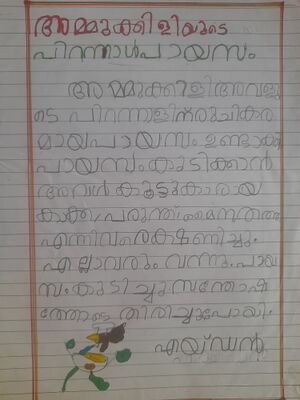 അമ്മുക്കിളിയുടെ
പിറന്നാൾപായസം
അമ്മുക്കിളി അവളു
ടെ പിറന്നാളിന് രുചികര
മായപായസം ഉണ്ടാക്കി
പായസം കുടിക്കാൻ
അവൾ കൂട്ടുകാരായ
കാക്ക, പരുന്ത്, മൈന, തത്ത
എന്നിവരെ ക്ഷണിച്ചു.
എല്ലാവരും വന്നു. പായ
സം കുടിച്ചു സന്തോഷ
ത്തോടെ തിരിച്ചുപോയി.
എയ്ഡൻ